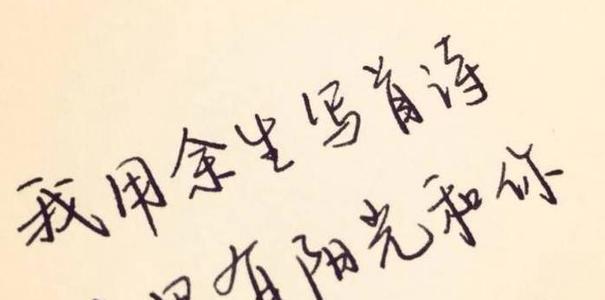 我用余生写首诗
里有阳光和你